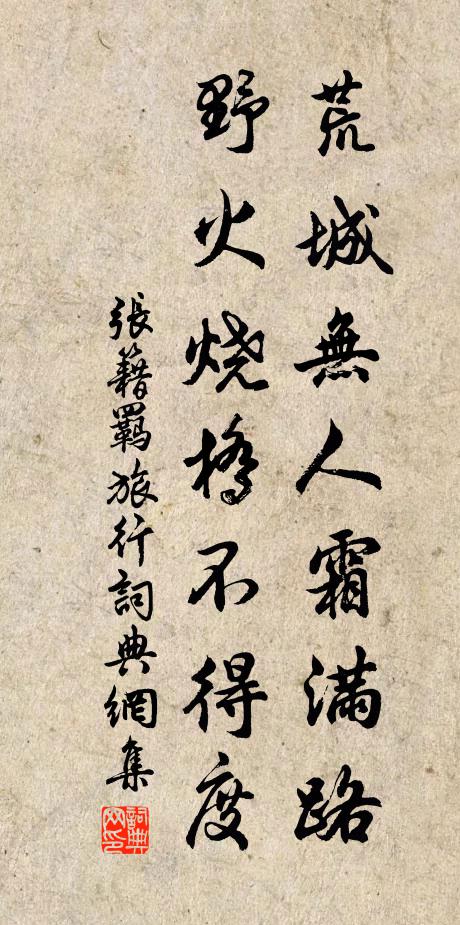 荒城無人霜滿路
野火燒橋不得度
張籍羈旅行詞典網集
詞典網印